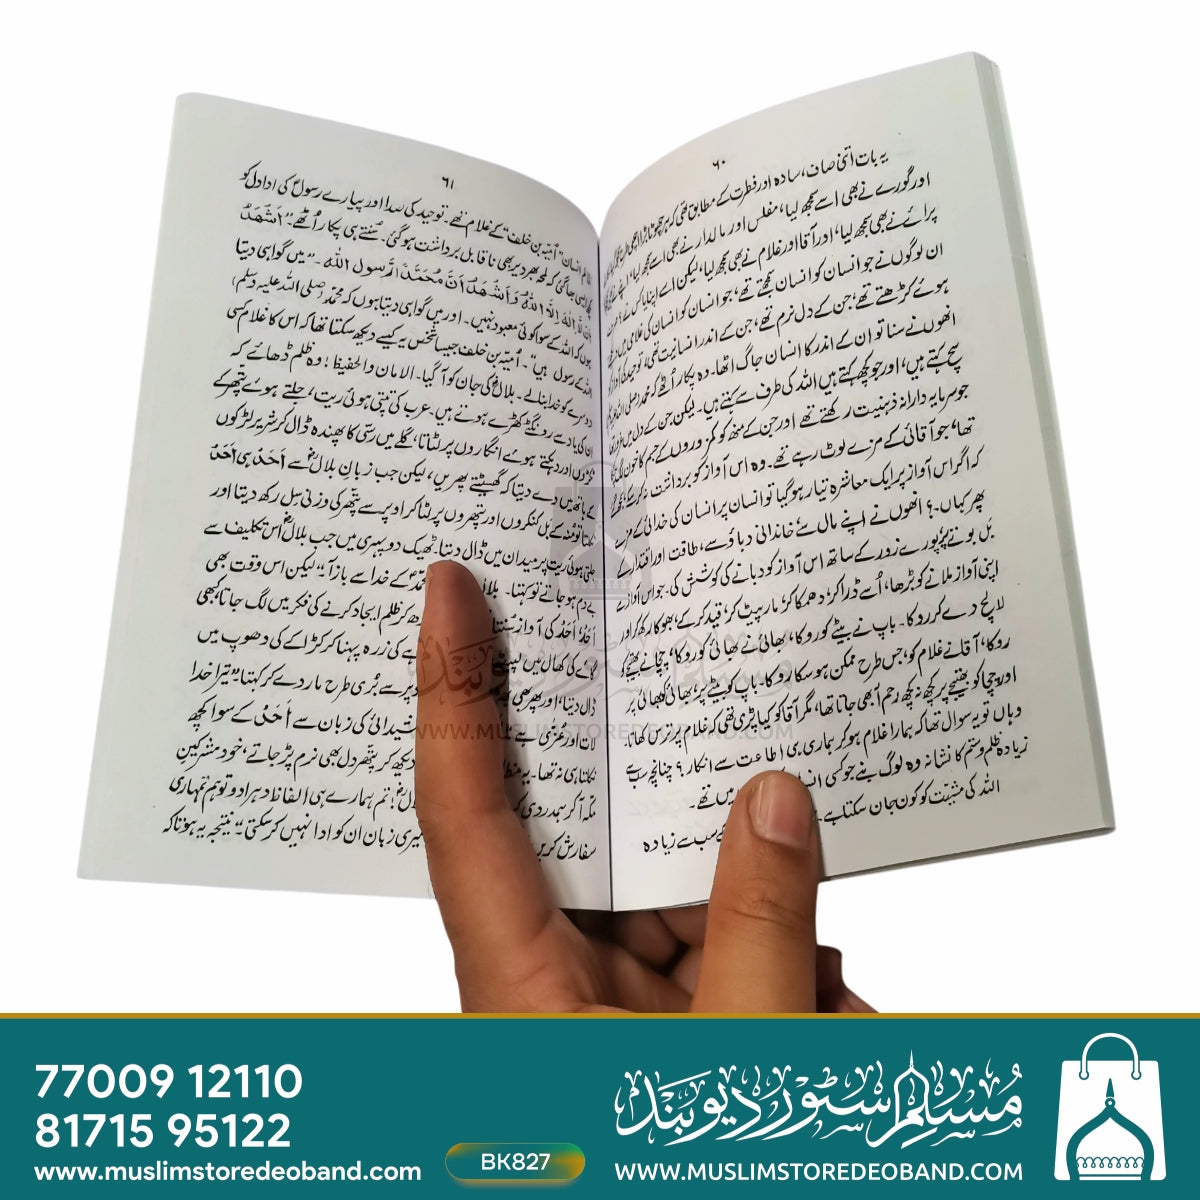 ۶۰
یہ بات اتنی صاف، سادہ اور فطرت کے مطابق تھی کہ ہر چھوٹا بڑا
اور گورے نے بھی اسے سمجھ لیا، مفلس اور مالدار نے بھی اسے سمجھ لیا، اپنے
پرائے نے بھی سمجھ لیا، اور آقا اور غلام نے بھی سمجھ لیا، لیکن اسے اپنایا کس نے؟
ان لوگوں نے جو انسان کو انسان سمجھتے تھے، جو انسان کو انسان کی غلامی میں
ہوئے کڑھتے تھے، جن کے دل نرم تھے، جن کے اندر انسانیت تھی، توحید کی آواز
انھوں نے سنا تو ان کے اندر کا انسان جاگ اٹھا۔ وہ پکار اُٹھے کہ محمد (صلی اللہ
سچ کہتے ہیں، اور جو کچھ کہتے ہیں اللہ کی طرف سے کہتے ہیں۔ لیکن جن کے دل میں
جو سرمایہ دارانہ ذہنیت رکھتے تھے اور جن کے منھ کو کمزوروں کے جسم کا خون
تھا، جو آقائی کے مزے لوٹ رہے تھے۔ وہ اس آواز کو برداشت نہ کر سکے،
کہ اگر اس آواز پر ایک معاشرہ تیار ہو گیا تو انسان پر انسان کی خدائی کے مزے
پھر کہاں۔؟ انھوں نے اپنے مال سے، خاندانی دباؤ سے، طاقت اور اقتدار کے
بَل بوتے پر، پورے زور کے ساتھ اس آواز کو دبانے کی کوشش کی۔ جو اس آواز سے
اپنی آواز ملانے کو بڑھا، اُسے ڈرا کر، دھمکا کر، مار پیٹ کر، قید کر کے، بھوکا رکھ کر اور
لالچ دے کر روکا۔ باپ نے بیٹے کو روکا، بھائی نے بھائی کو روکا، چچا نے بھتیجے کو
روکا، آقا نے غلام کو، جس طرح ممکن ہو سکا روکا۔ باپ کو بیٹے پر، بھائی کو بھائی پر
اور چچا کو بھتیجے پر کچھ نہ کچھ رحم آ بھی جاتا تھا، مگر آقا کو کیا پڑی تھی کہ غلام پر ترس کھاتا۔
وہاں تو یہ سوال تھا کہ ہمارا غلام ہو کر ہماری ہی اطاعت سے انکار؟ چنانچہ سب سے
زیادہ ظلم و ستم کا نشانہ وہ لوگ بنے جو کسی انسا میں تھے۔
اللہ کی مشیّت کو کون جان سکتا ہے۔ کے سب سے زیادہ
۶۱
ظالم انسان "اُمیّہ بن خلف" کے غلام تھے۔ توحید کی صدا اور پیارے رسولؐ کی ادا دل کو
ایسی بھا گئی کہ لمحہ بھر دیر بھی ناقابلِ برداشت ہو گئی۔ سُنتے ہی پکار اُٹھے۔ "اَشْھَدُ
اَنْ لَّا اِلٰہَ اِلَّا اللہُ وَاَشْھَدُ اَنَّ مُحَمَّدًا رَّسُوْلُ اللہِ۔" میں گواہی دیتا
ہوں کہ اللہ کے سوا کوئی معبود نہیں۔ اور میں گواہی دیتا ہوں کہ محمدؐ (صلی اللہ علیہ وسلم)
اللہ کے رسول ہیں"۔ اُمیّہ بن خلف جیسا شخص یہ کیسے دیکھ سکتا تھا کہ اس کا غلام کسی
دوسرے کو خدا بنا لے۔ بلالؓ کی جان کو آ گیا۔ الامان والحفیظ! وہ ظلم ڈھائے کہ
ان کی یاد سے رونگٹے کھڑے ہوتے ہیں۔ عرب کی تپتی ہوئی ریت، جلتے ہوئے پتھر کے
اور دہکتے ہوئے انگاروں پر لٹاتا، گلے میں رسّی کا پھندہ ڈال کر شریر لڑکوں
کے ہاتھ میں دے دیتا کہ گھسیٹتے پھریں، لیکن جب زبانِ بلالؓ سے اَحَدٌ ہی اَحَدٌ
نکلتا تو مُنھ کے بل کنکروں اور پتھروں پر لٹا کر اوپر سے پتھر کی وزنی سِل رکھ دیتا اور
جلتی ہوئی ریت پر میدان میں ڈال دیتا۔ ٹھیک دوپہری میں جب بلالؓ اس تکلیف سے
بے دم ہو جاتے تو کہتا۔ بلال محمدؐ کے خدا سے باز آ؟ لیکن اس وقت بھی
اَحَدٌ اَحَد کی آواز سُنتا کر ظلم ایجاد کرنے کی فکر میں لگ جاتا، کبھی
گائے کی کھال میں لپیٹ ہے کی زرہ پہنا کر کڑاکے کی دھوپ میں
ڈال دیتا، اور پھر بھی دیر سے بُری طرح مار دے کر کہتا "تیرا خدا
لات اور عُزّیٰ ہے شیدائی کی زبان سے اَحَدٌ کے سوا کچھ
نکلتا ہی نہ تھا۔ یہ منظر دیکھ کر پتھر دل بھی نرم پڑ جاتے، خود مشرکینِ
مکہ آ کر ہمدردی کر بلالؓ! تم ہمارے ہی الفاظ دہرا دو تو ہم تمہاری
سفارش کریں میری زبان ان کو ادا نہیں کر سکتی۔" نتیجہ یہ ہوتا کہ
مسلم سٹور دیوبند
WWW.MUSLIMSTOREDEOBAND.COM
77009 12110
81715 95122
www.muslimstoredeoband.com
BK827
مسلم سٹور دیوبند
WWW.MUSLIMSTOREDEOBAND.COM